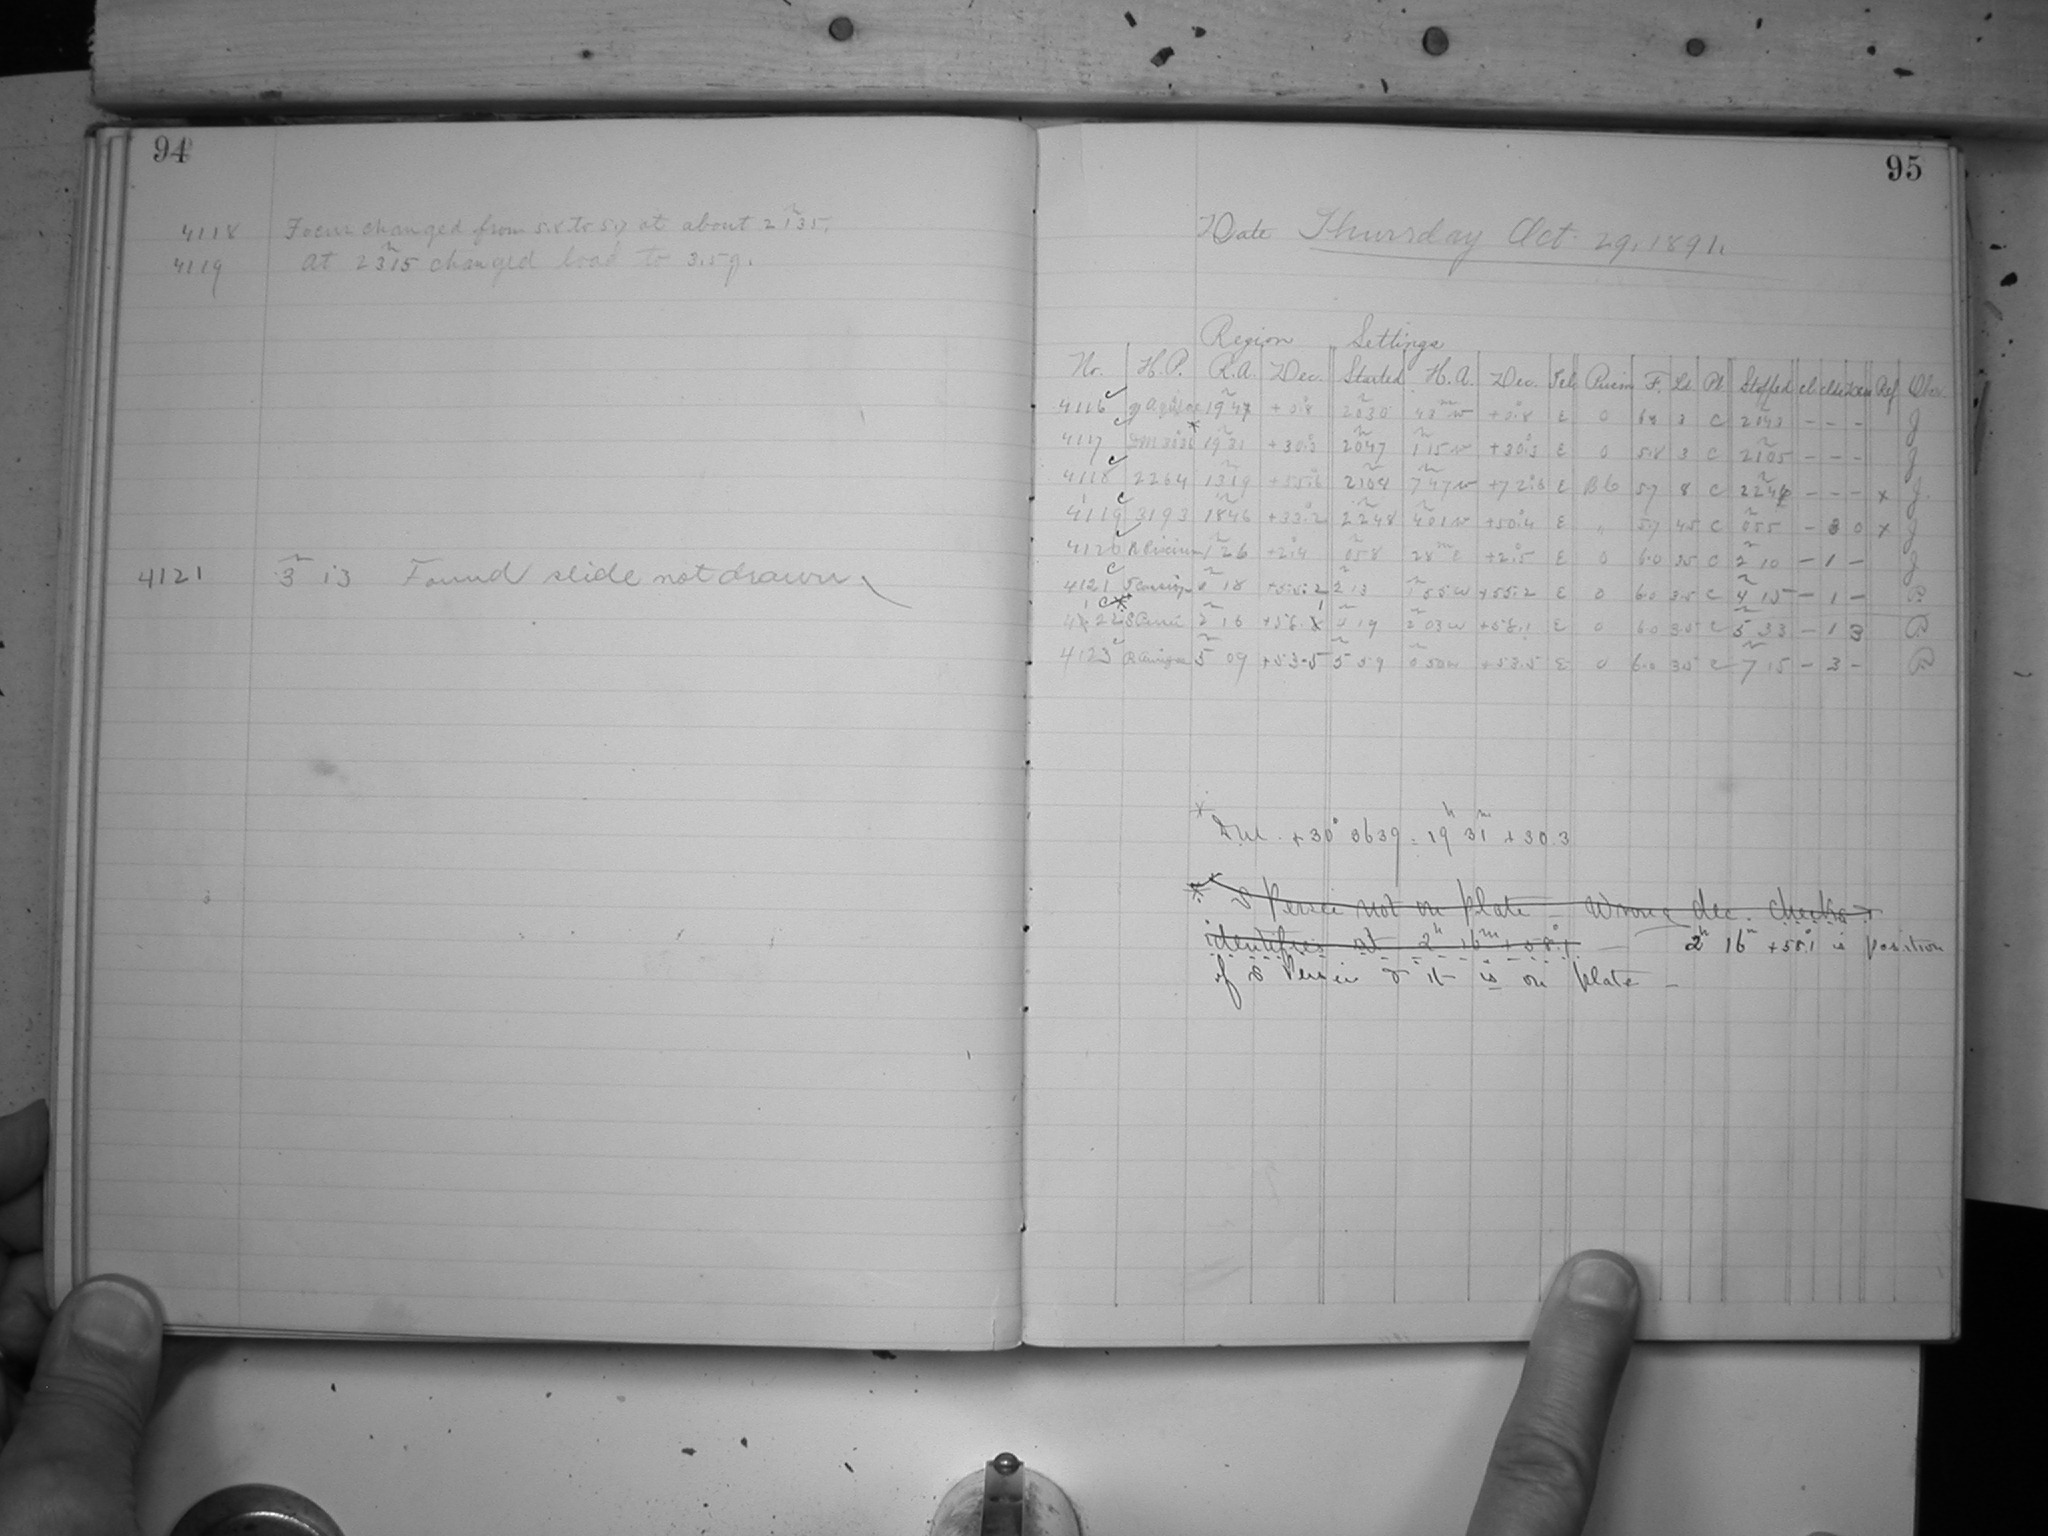 94
4118 Focus changed from 5.8 to 5.7 at about 21 35.
4119 At 23 15 changed load to 3.5 g.
4121 3 13 Found slide not drawn
95
Date Thursday Oct. 29, 1891.
Region Settings
No. H.P. R.A. Dec. Started H.A. Dec. Tel. Prism F. Ld. Pl. Stopped Ref Obsr.
4116 19 47 +0.8 20 30 43m w +0.8 E 0 3 C 20 43 - - - J
4117 DM 19 31 +30.3 20 47 1 15 w +30.3 E 0 5.8 3 C 21 05 - - - J
4118 2264 13 19 21 08 7 47 w E B 6 5.7 8 C - - - x J.
4119 3193 18 46 +33.2 22 48 4 01 w +50.4 E " 5.7 4.5 C 0 55 - 3 0 x J
4120 1 26 +2.4 0 58 28m E +2.5 E 0 6.0 3.5 C 2 10 - 1 - J
4121 0 18 +55.2 2 13 1 55 w +55.2 E 0 6.0 3.5 C 4 15 - 1 -
4122 S Persei 2 16 +58.1 4 19 2 03 w +58.1 E 0 6.0 3.5 C 5 33 - 1 3
4123 R Aurigae 5 09 +53.5 5 59 0 50 w +53.5 E 0 6.0 3.5 C 7 15 - 3 -
x DM. +30° 3639 = 19h 31m +30.3
* S Persei not on plate - Wrong dec. checks +
identifies at 2h 16m +58°.1 - 2h 16m +58°.1 is position
of S Persei & it is on plate -